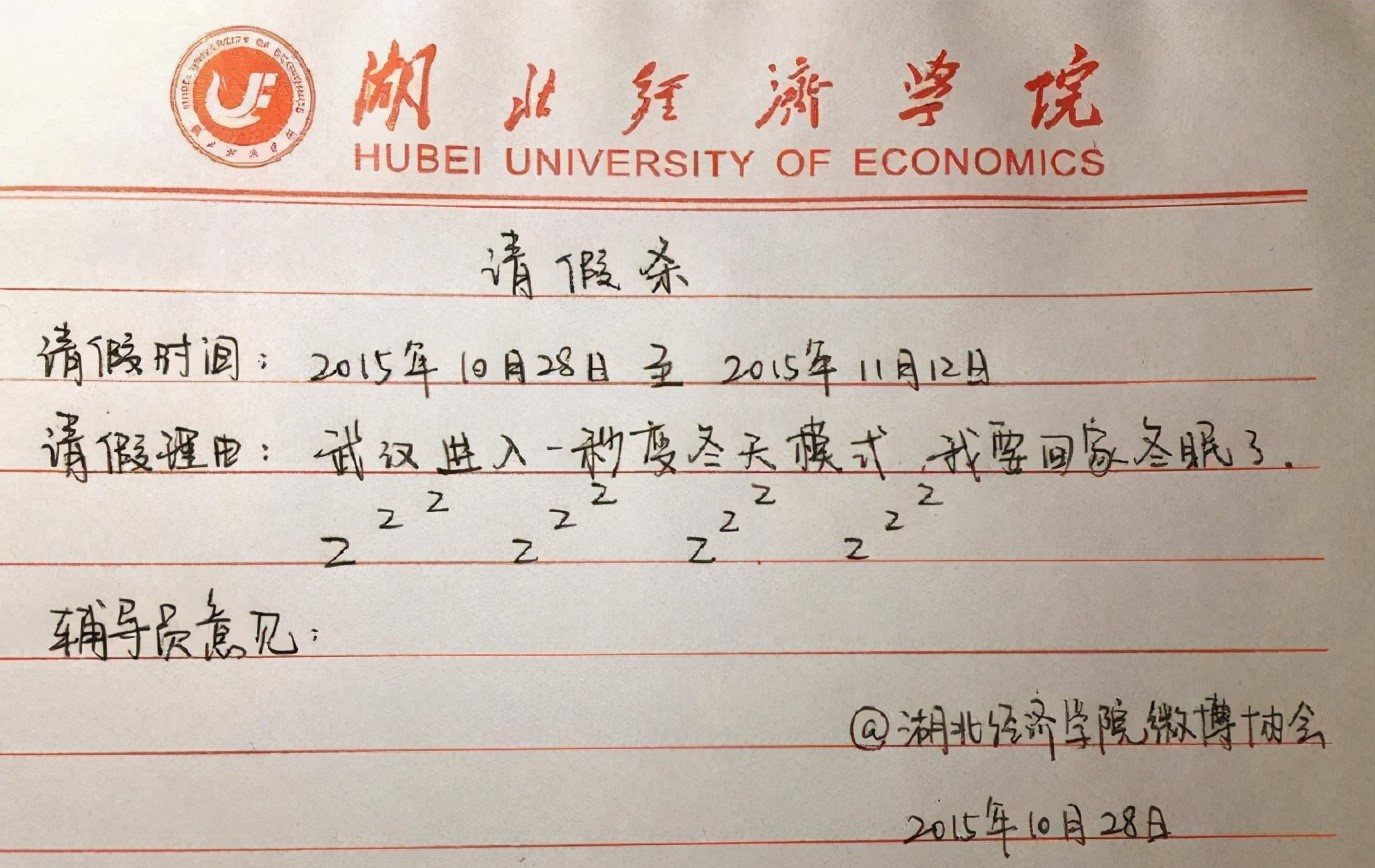 湖北经济学院
HUBEI UNIVERSITY OF ECONOMICS
请假条
请假时间：2015年10月28日 至 2015年11月12日
请假理由：武汉进入一秒变冬天模式，我要回家冬眠了.
z z z z z z z z z z z z
辅导员意见：
@湖北经济学院微博协会
2015年10月28日